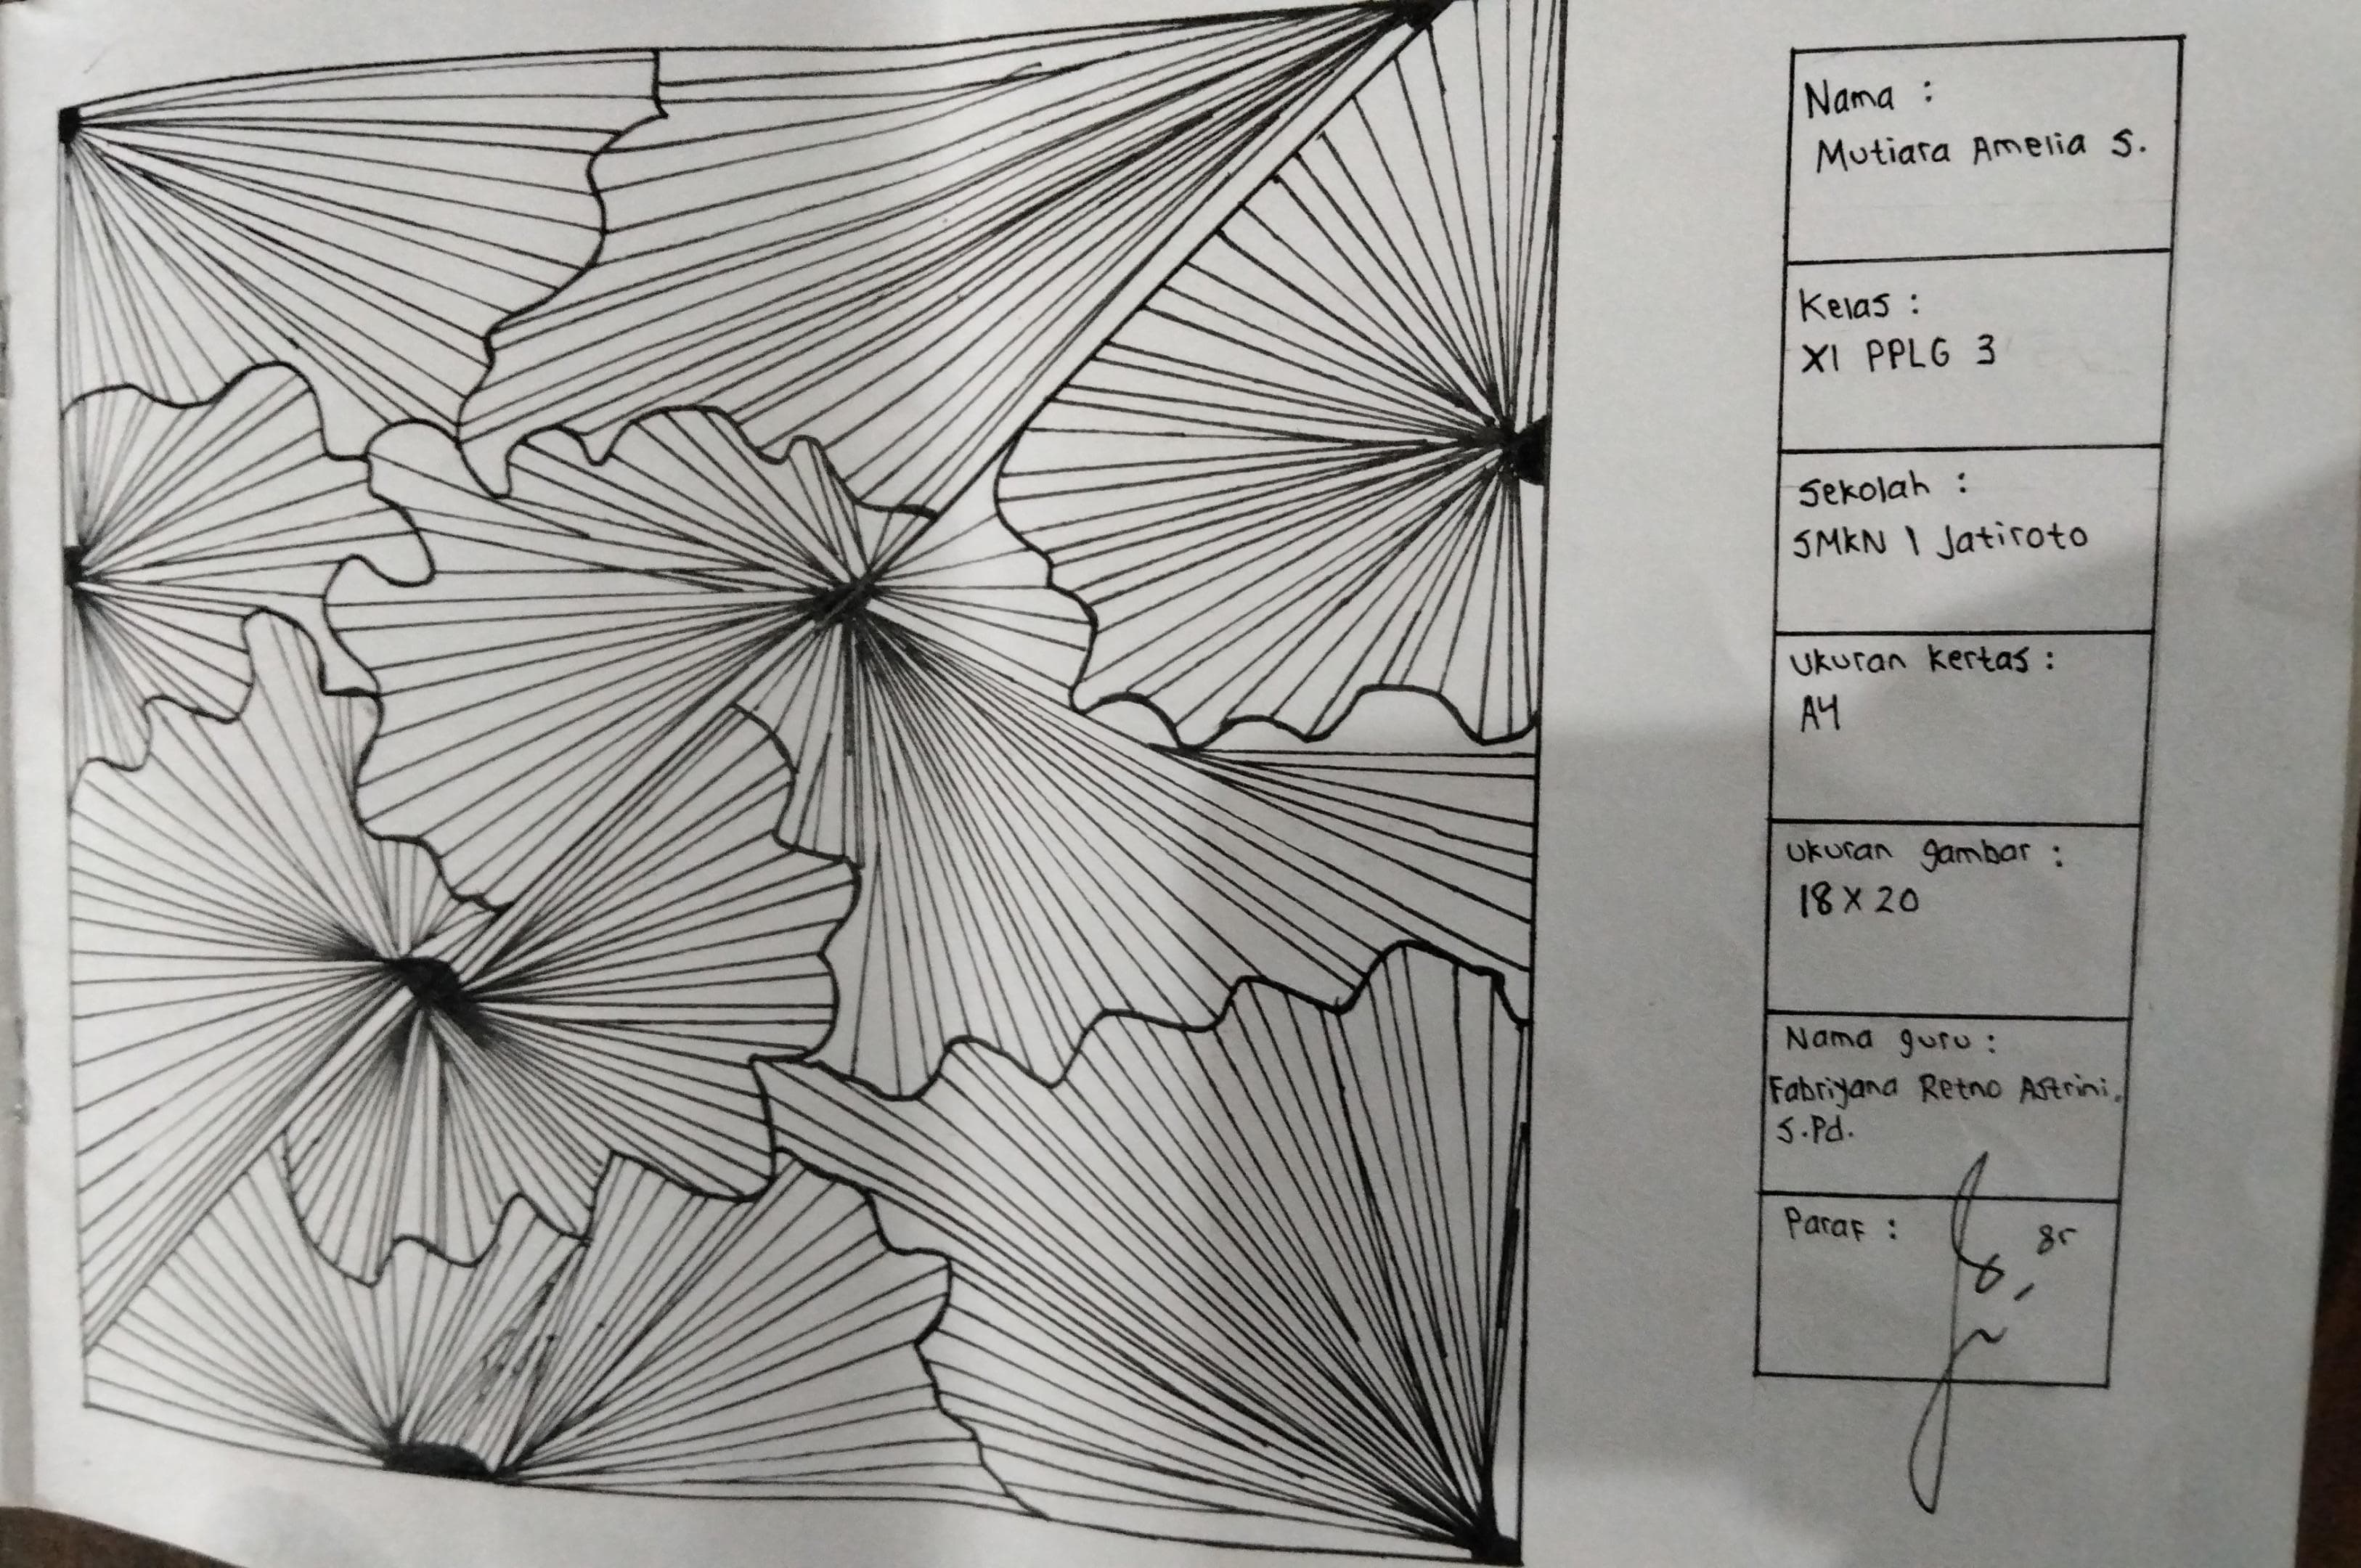 Nama :
Mutiara Amelia S.
Kelas :
XI PPLG 3
Sekolah :
SMKN 1 Jatiroto
Ukuran Kertas :
A4
Ukuran gambar :
18 X 20
Nama guru :
Fabriyana Retno Astrini,
S.Pd.
Paraf :
85